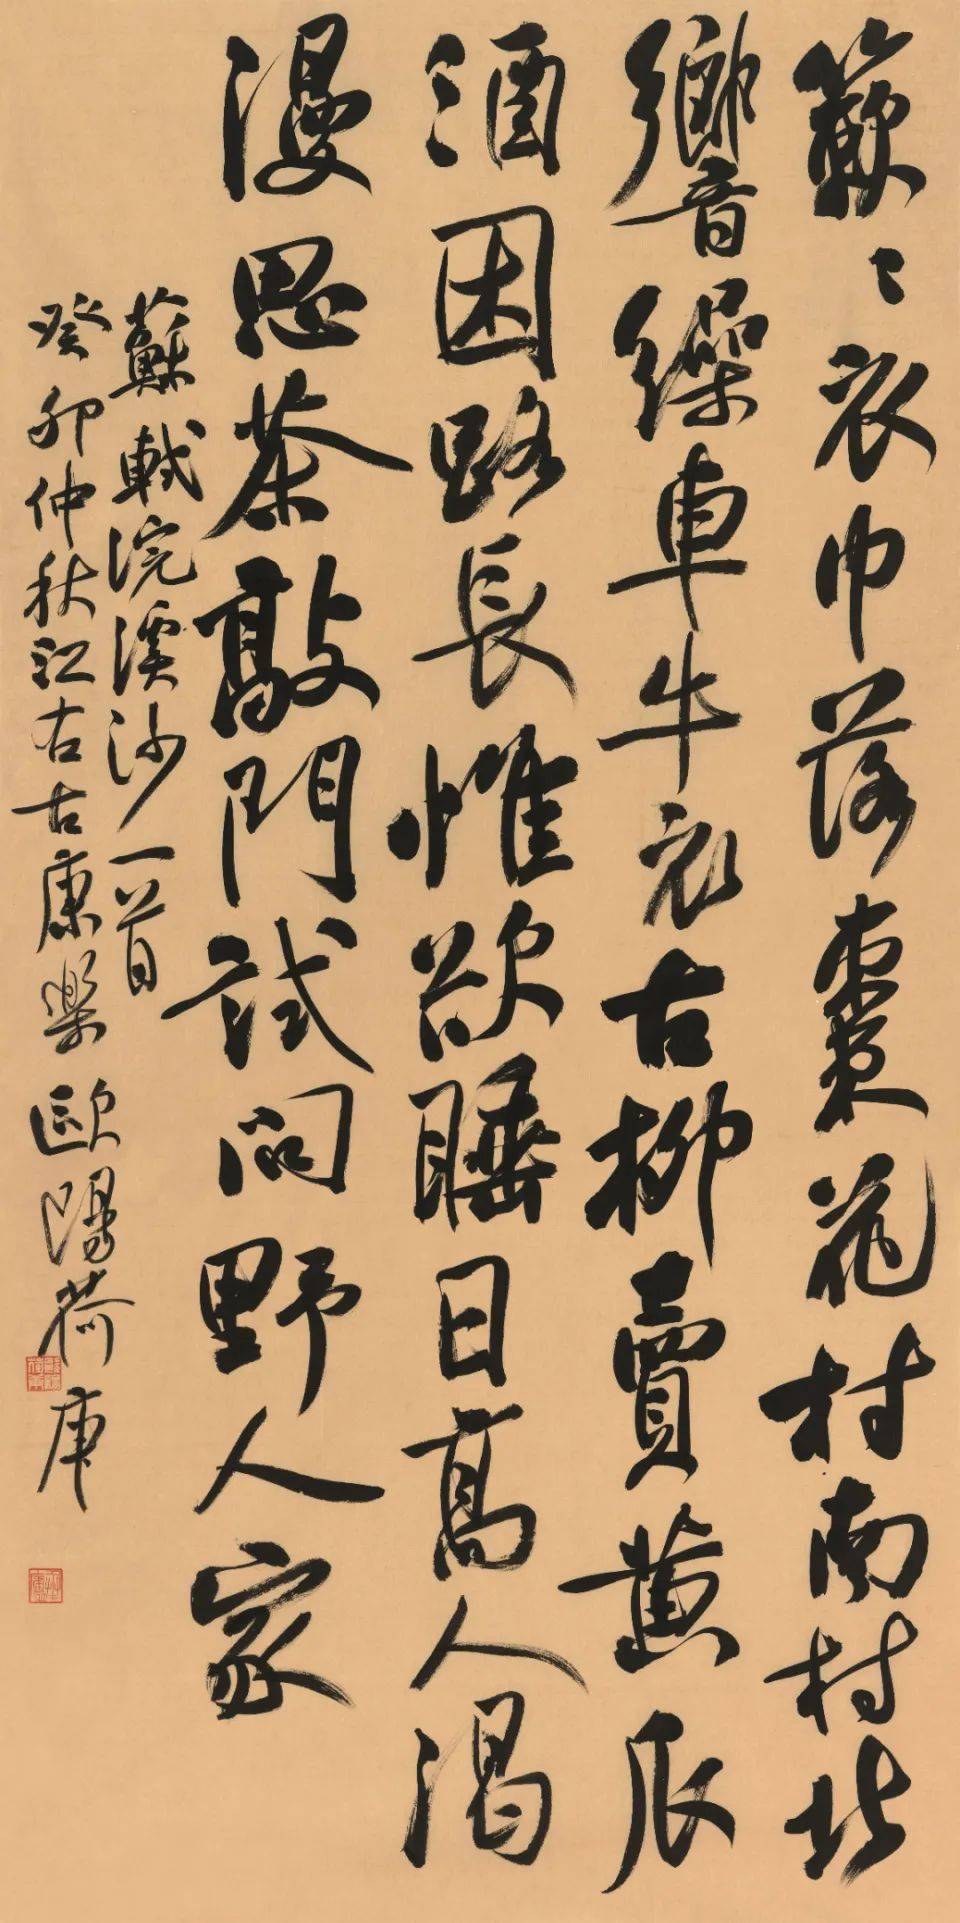 簌〻衣巾落棗花村南村北
響繰車牛衣古柳賣黃瓜
酒困路長惟欲睡日高人渴
漫思茶敲門試問野人家
蘇軾浣溪沙一首
癸卯仲秋江右古康樂歐陽荷庚